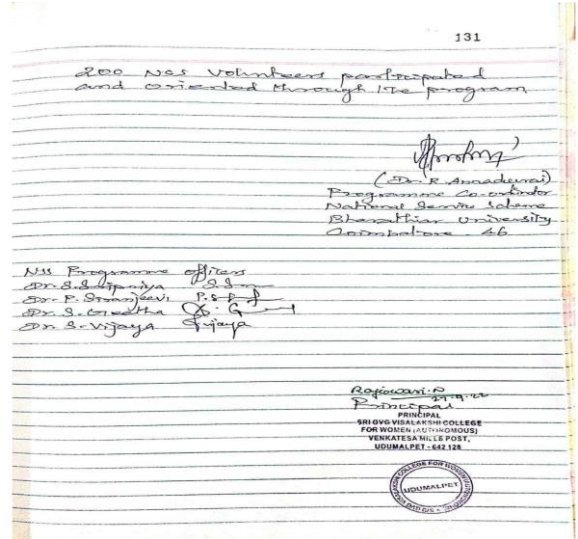 131
200 NSS Volunteers participated
and oriented through the program
(Dr. R. Annadurai)
Programme Co-ordinator
National Service Scheme
Bharathiar University
Coimbatore - 46
NSS Programme officers
Dr. S. Saipriya
Dr. P. Siranjeevi P.S
Dr. S. Geetha S. G
Dr. S. Vijaya S. Vijaya
Rajeswari.P
Principal
PRINCIPAL
SRI GVG VISALAKSHI COLLEGE
FOR WOMEN (AUTONOMOUS)
VENKATESA MILLS POST,
UDUMALPET - 642 128
COLLEGE FOR WOMEN
UDUMALPET